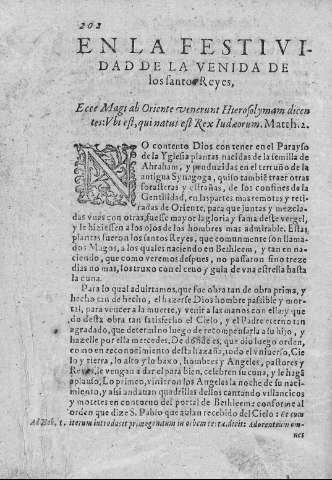 202
EN LA FESTIVI-
DAD DE LA VENIDA DE
los santos Reyes,
Ecce Magi ab Oriente venerunt Hierosolymam dicen
tes: Vbi est, qui natus est Rex Iudæorum. Matth. 2.
NO contento Dios con tener en el Parayso
de la Yglesia plantas nacidas de la semilla de
Abraham, y produzidas en el terruño de la
antigua Synagoga, quiso tambiē traer otras
forasteras y estrañas, de los confines de la
Gentilidad, en las partes mas remotas y reti-
radas de Oriente, para que juntas y mezcla-
das vnas con otras, fuesse mayor la gloria y fama deste vergel,
y le hiziessen a los ojos de los hombres mas admirable. Estas
plantas fueron los santos Reyes, que comunmente son llama-
dos Magos, a los quales naciendo en Bethleem, y tan en na-
ciendo, que como veremos despues, no passaron sino treze
dias no mas, los truxo con el ceño y guia de vna estrella hasta
la cuna.
Para lo qual aduirtamos, que fue obra tan de obra prima, y
hecho tan de hecho, el hazerse Dios hombre passible y mor-
tal, para vencer a la muerte, y venir a las manos con ella, y que
do desta obra tan satisfecho el Cielo, y el Padre eterno tan
agradado, que determino luego de recompensarla a su hijo, y
hazelle por ella mercedes. De dōde es, que dio luego orden,
como en reconocimiento desta hazaña, todo el vniuerso, Cie
lo y tierra, lo alto y lo baxo, hombres y Angeles, pastores y
Reyes, le vengan a dar el para bien, celebren su cuna, y le hagā
aplauso. Lo primero, vinieron los Angeles la noche de su na-
cimiento, y assi andauan quadrillas dellos cantando villancicos
y motetes en contorno del portal de Bethleem: conforme al
orden que dize S. Pablo que auian recebido del Cielo: Et cum
Ad Heb. 1. iterum introducit primogenitum in orbem terræ, dicit: Adorent eum om-
nes